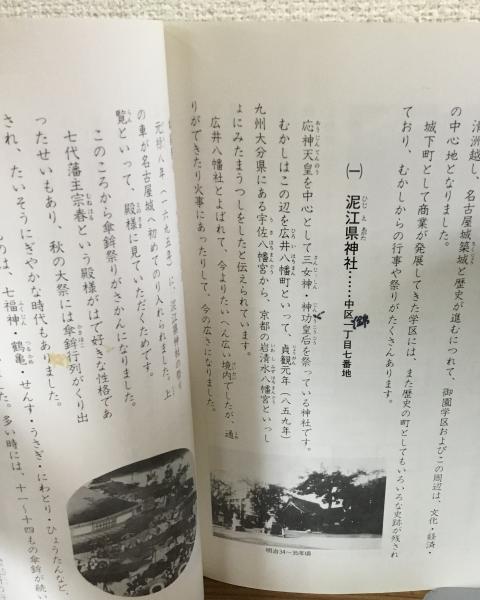 清洲越し、名古屋城築城と歴史が進むにつれて、御園学区およびこの周辺は、文化・経済・
の中心地となりました。
城下町として商業が発展してきた学区には、また歴史の町としてもいろいろな史跡が残され
ており、むかしからの行事や祭りがたくさんあります。
(一) 泥江県神社……中区錦一丁目七番地
応神天皇を中心として三女神・神功皇后を祭っている神社です。
むかしはこの辺を広井八幡町といって、貞観元年(八五九年)
九州大分県にある宇佐八幡宮から、京都の岩清水八幡宮といっし
ょにみたまうつしをしたと伝えられています。
広井八幡社とよばれて、今よりたいへん広い境内でしたが、通
りができたり火事にあったりして、今の広さになりました。
明治34〜35年頃
元禄八年(一六九五年)に、泥江県神社の祭り
の車が名古屋城へ初めてのり入れられました。上
覧といって、殿様に見ていただくためです。
このころから傘鉾祭りがさかんになりました。
七代藩主宗春という殿様がはで好きな性格であ
ったせいもあり、秋の大祭には傘鉾行列がくり出
され、たいそうにぎやかな時代もありました。
ものは、七福神・鶴亀・せんす・うさぎ・にわとり・ひょうたんなど、
た。多い時には、十一〜十四もの傘鉾が続い